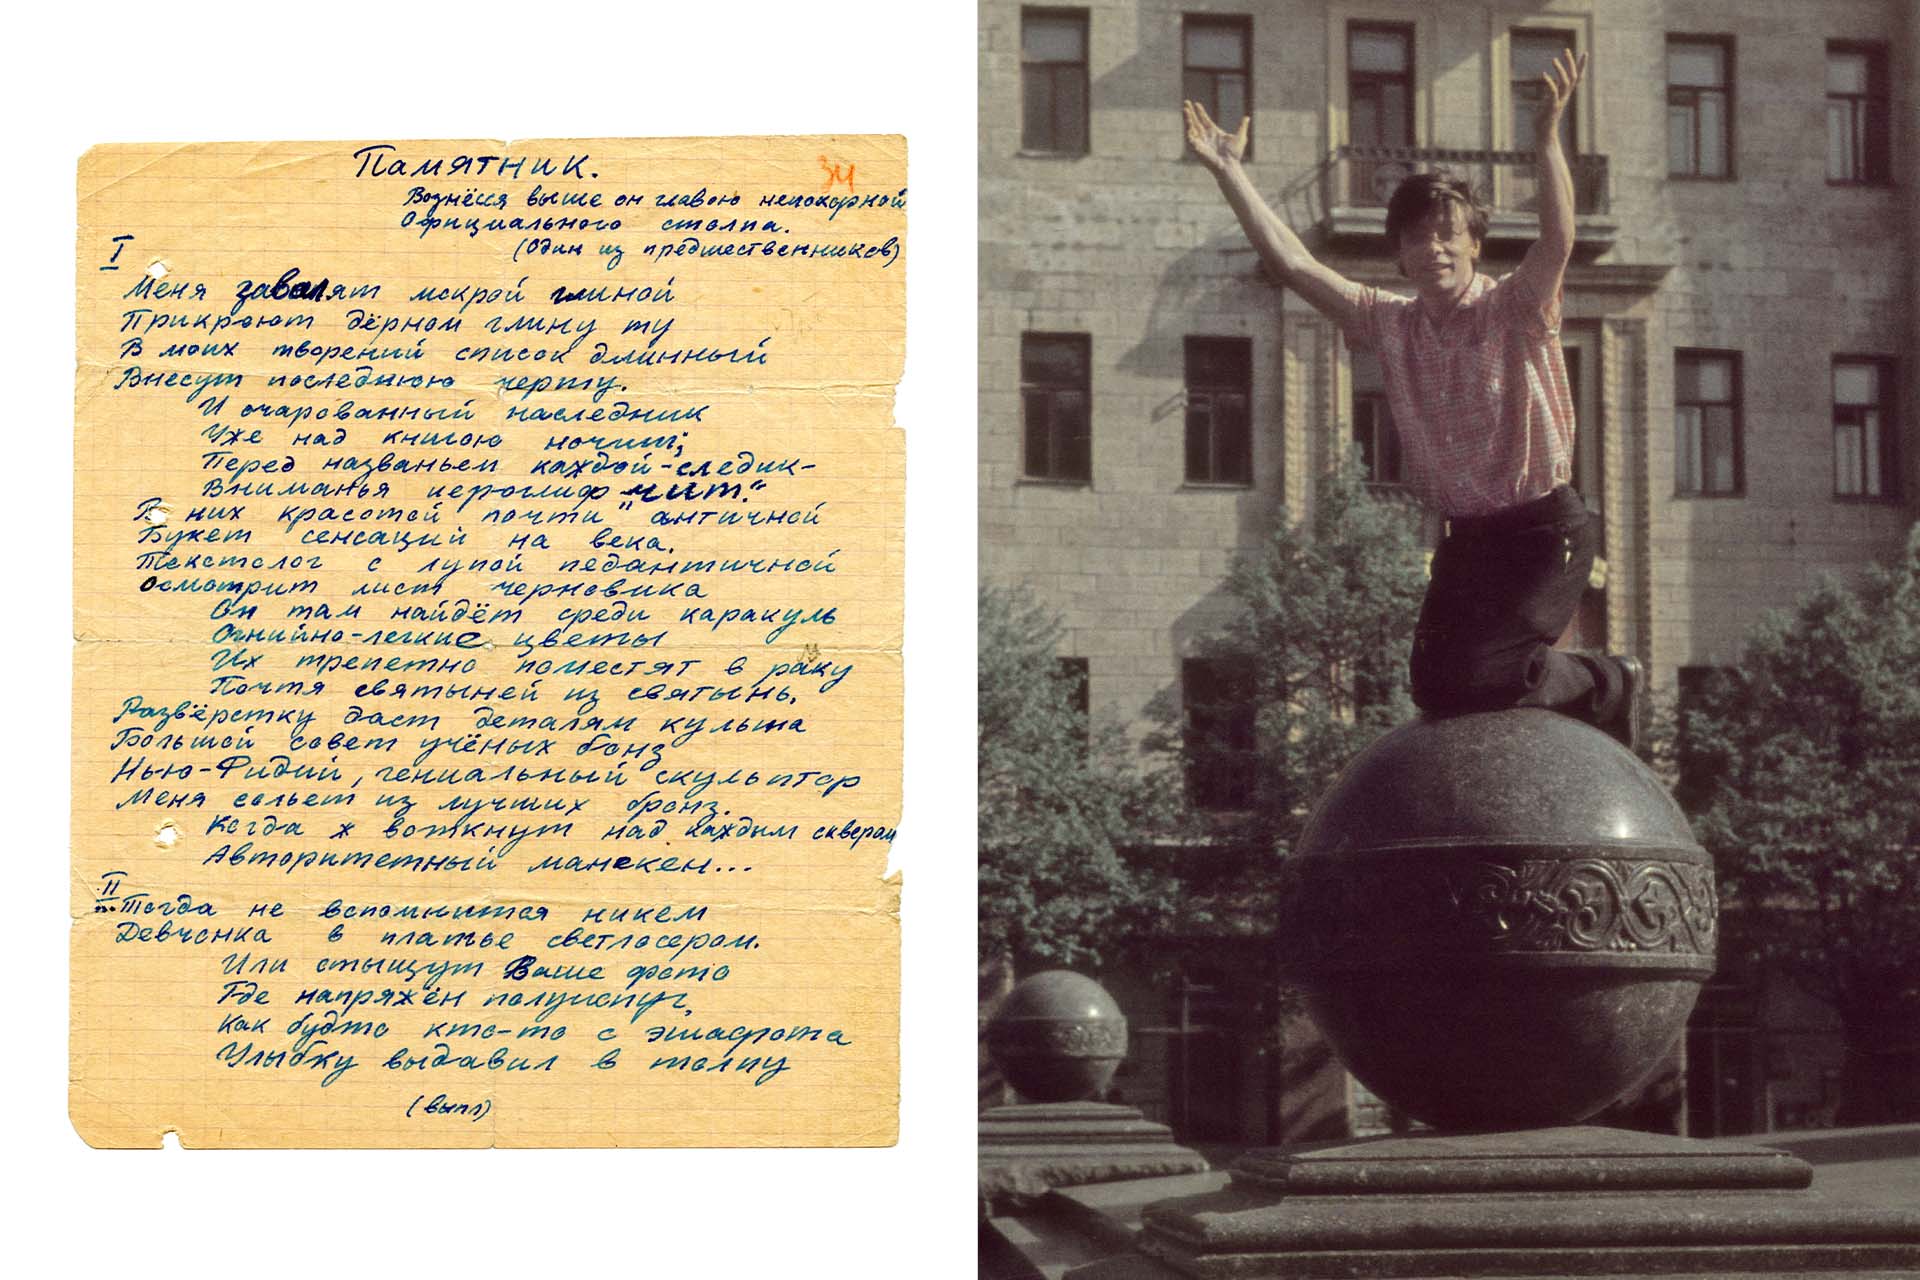 Памятник.
34
Вознёсся выше он главою непокорной
Официального столпа.
(один из предшественников)
I
Меня завалят мокрой глиной
Прикроют дёрном глину ту
В моих творений список длинный
Внесут последнюю черту.
И очарованный наследник
Уже над книгою ночит;
Перед названьем каждой-следик-
Вниманья иероглиф „чит."
В них красотой почти античной
Букет сенсаций на века.
Текстолог с лупой педантичной
Осмотрит лист черновика
Он там найдёт среди каракуль
Огнийно-легкие цветы
Их трепетно поместят в раку
Почтя святыней из святынь.
Развёрстку даст деталям культа
Большой совет учёных бонз
Нью-Фидий, гениальный скульптор
Меня сольет из лучших бронз.
Когда ж воткнут над каждым сквером
Авторитетный манекен...
II
Тогда не вспомнится никем
Девчонка в платье светлосером.
Или отыщут Ваше фото
Где напряжён полуиспуг,
Как будто кто-то с эшафота
Улыбку выдавил в толпу